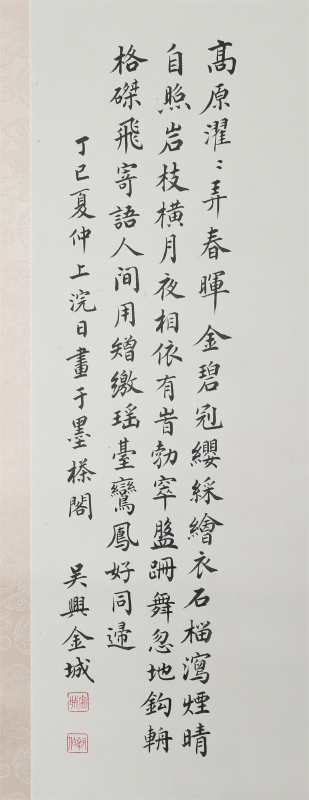 高原濯〻弄春暉金碧冠纓綵繪衣石榴瀉煙晴
自照岩枝橫月夜相依有旹勃窣盤跚舞忽地鈎輈
格磔飛寄語人间用矰繳瑶臺鸞鳳好同歸
丁巳夏仲上浣日畫于墨㯶閣 吴興金城